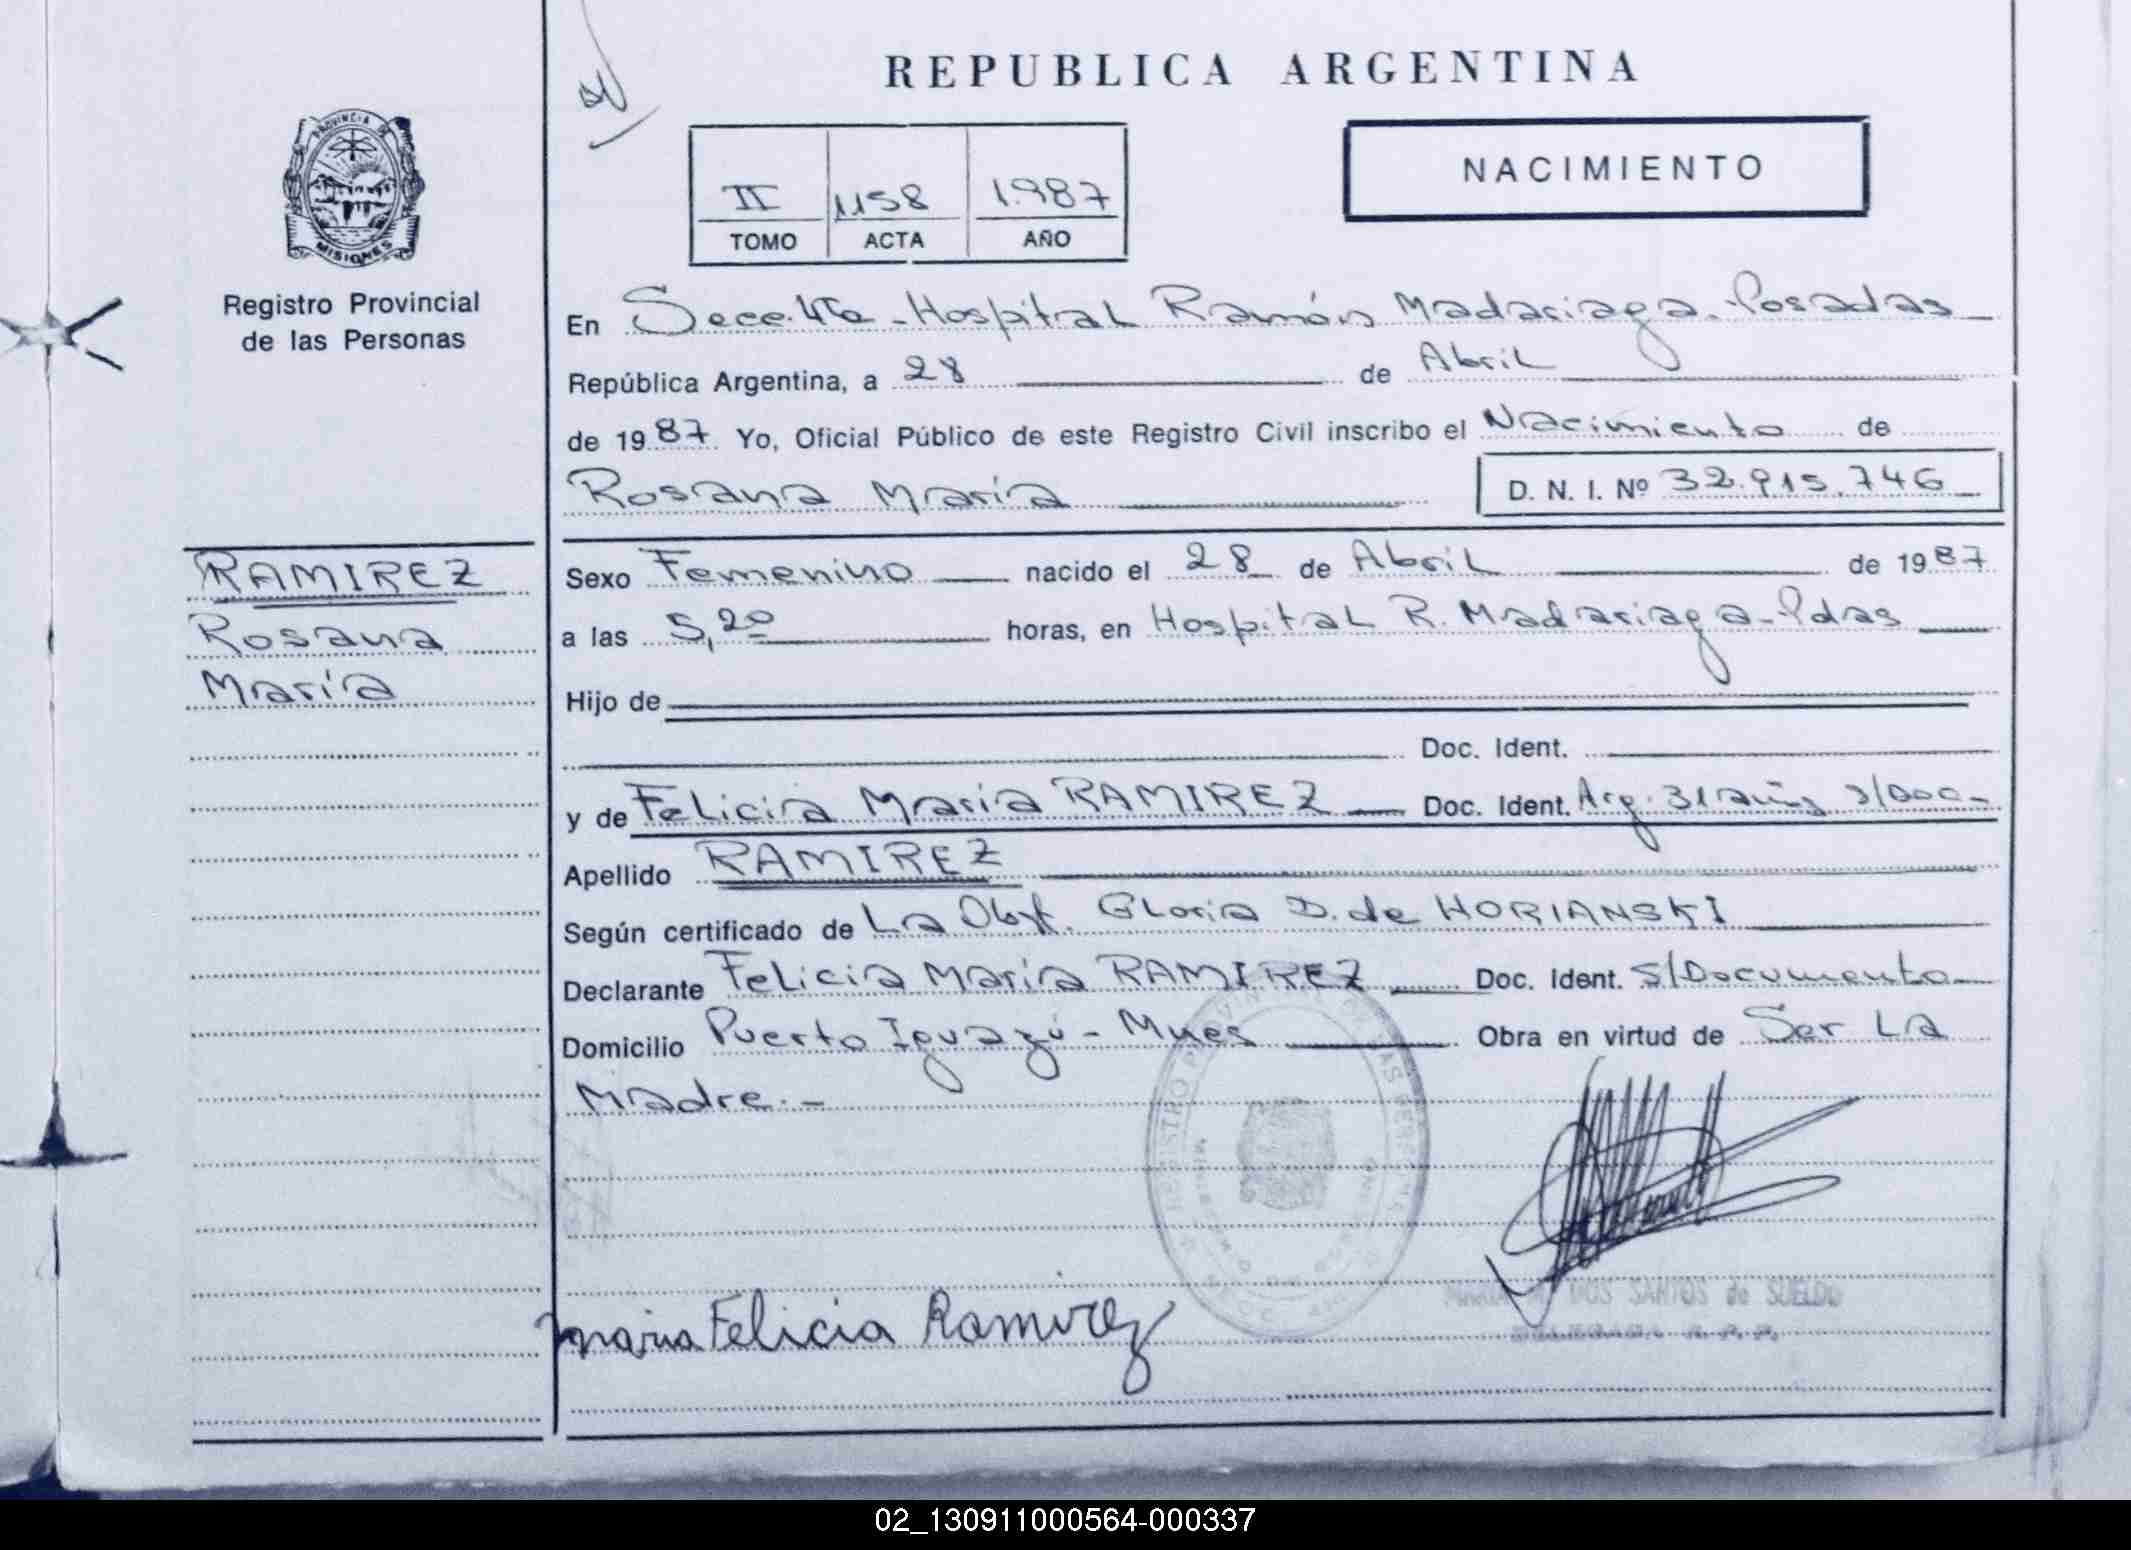 REPUBLICA ARGENTINA
NACIMIENTO
II 1158 1.987
TOMO ACTA AÑO
PROVINCIA DE
MISIONES
Registro Provincial
de las Personas
RAMIREZ
Rosana
María
En Secc. 4ta - Hospital Ramón Madariaga - Posadas
República Argentina, a 28 de Abril
de 1987 Yo, Oficial Público de este Registro Civil inscribo el Nacimiento de
Rosana María D. N. I. Nº 32.915.746
Sexo Femenino nacido el 28 de Abril de 1987
a las 5,20 horas, en Hospital R. Madariaga - Pdas
Hijo de
Doc. Ident.
y de Felicia María RAMIREZ Doc. Ident. Arg. 31 años s/Doc-
Apellido RAMIREZ
Según certificado de La Obst. Gloria D. de HORIANSKI
Declarante Felicia María RAMIREZ Doc. Ident. S/Documento
Domicilio Puerto Iguazú - Mnes Obra en virtud de Ser La
Madre.-
maria Felicia Ramirez
DOS SANTOS de SUELDO
02_130911000564-000337